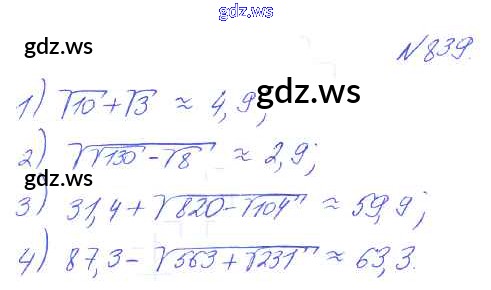 gdz.ws
gdz.ws
N 839.
1) √10 + √3 ≈ 4,9;
gdz.ws
2) √(√130 - √8) ≈ 2,9;
gdz.ws
3) 31,4 + √(820 - √104) ≈ 59,9;
4) 87,3 - √(563 + √231) ≈ 63,3.